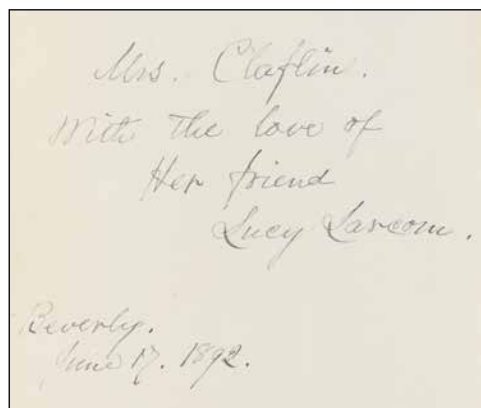 Mrs. Claflin.
With the love of
Her friend
Lucy Larcom.
Beverly.
June 17. 1892.